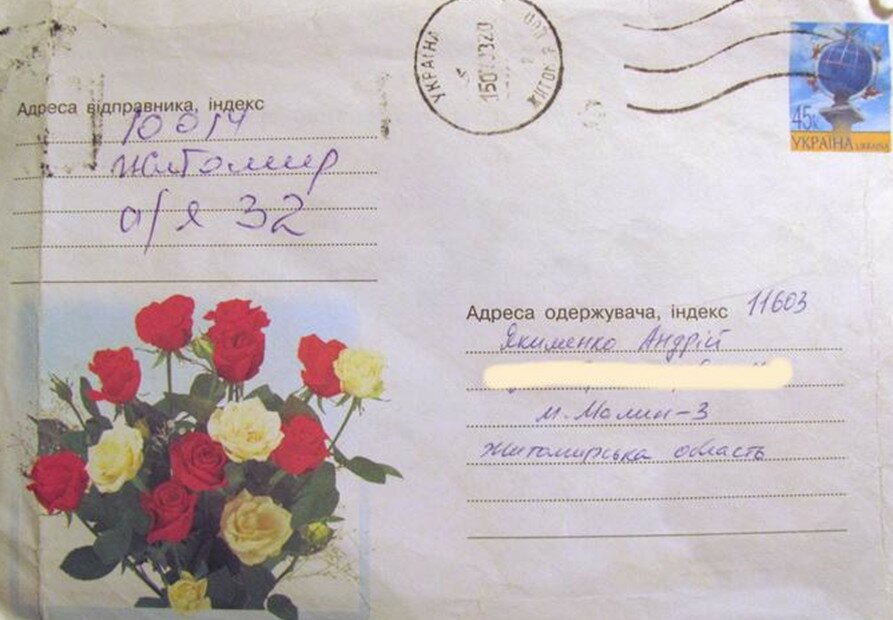 Адреса відправника, індекс
10014
Житомир
а/я 32
УКРАЇНА
ЖИТОМИР
45к
УКРАЇНА UKRAINA
Адреса одержувача, індекс 11603
Якименко Андрій
м. Малин-3
Житомирська область